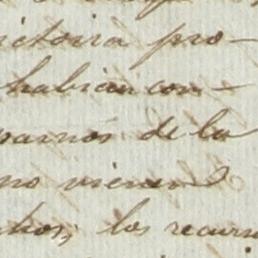 ictoria pro-
habian con-
parnos de la
no vienen
chos, los recurso